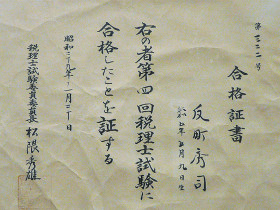 第三二二号
合格証書
反町秀司
五月九日生
右の者第四回税理士試験に
合格したことを証する
昭和二十九年十一月二十日
税理士試験委員委員長 松隈秀雄